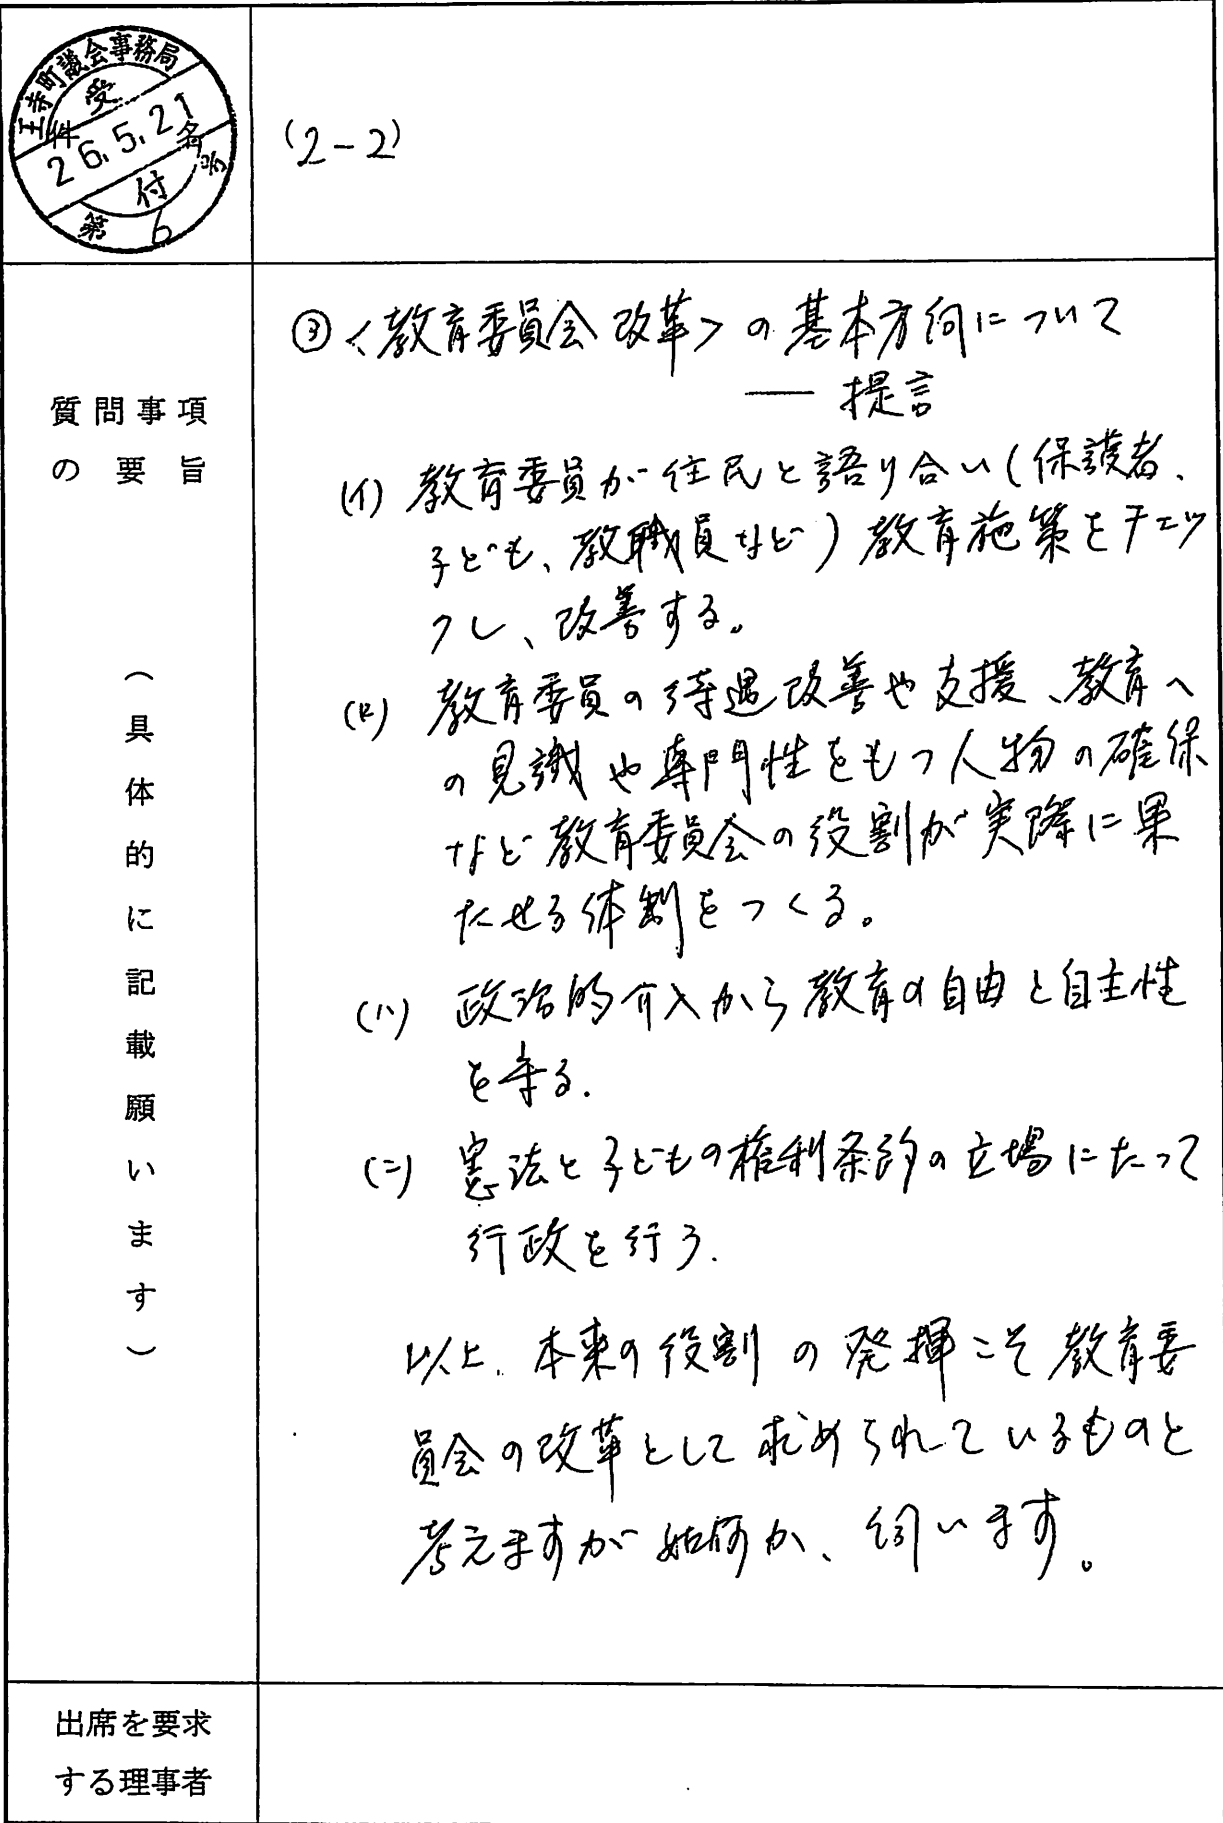 王寺町議会事務局
受
件 名
26.5.21
付 号
第 6
(2-2)
質問事項
の要旨
(具体的に記載願います)
③<教育委員会改革>の基本方向について
── 提言
(イ) 教育委員が住民と語り合い(保護者、
子ども、教職員など)教育施策をチェッ
クし、改善する。
(ロ) 教育委員の待遇改善や支援、教育へ
の見識や専門性をもつ人物の確保
など教育委員会の役割が実際に果
たせる体制をつくる。
(ハ) 政治的介入から教育の自由と自主性
を守る.
(ニ) 憲法と子どもの権利条約の立場にたって
行政を行う.
以上、本来の役割の発揮こそ教育委
員会の改革として求められているものと
考えますが如何か、伺います。
出席を要求
する理事者